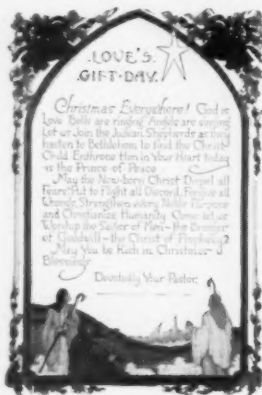 LOVE'S
GIFT-DAY.
Christmas Everywhere! God is
Love. Bells are ringing. Angels are singing.
Let us Join the Judean Shepherds as they
hasten to Bethlehem to find the Christ
Child. Enthrone Him in Your Heart today
as the Prince of Peace.
May the New-born Christ Dispel all
Fears, Put to Flight all Discord, Forgive all
Wrongs, Strengthen every Noble Purpose
and Christianize Humanity. Come let us
Worship the Savior of Men-the
of Goodwill-the Christ of Prophecy?
May You be Rich in Christmas
Blessings.
Devotedly Your Pastor,